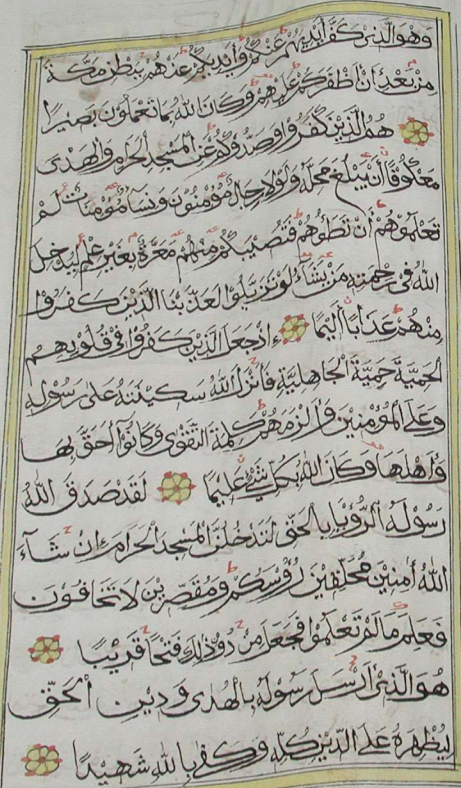 وَهُوَ الَّذِي كَفَّ أَيْدِيَهُمْ عَنْكُمْ وَأَيْدِيَكُمْ عَنْهُمْ بِبَطْنِ مَكَّةَ
مِنْ بَعْدِ أَنْ أَظْفَرَكُمْ عَلَيْهِمْ وَكَانَ اللَّهُ بِمَا تَعْمَلُونَ بَصِيرًا
هُمُ الَّذِينَ كَفَرُوا وَصَدُّوكُمْ عَنِ الْمَسْجِدِ الْحَرَامِ وَالْهَدْيَ
مَعْكُوفًا أَنْ يَبْلُغَ مَحِلَّهُ وَلَوْلَا رِجَالٌ مُؤْمِنُونَ وَنِسَاءٌ مُؤْمِنَاتٌ لَمْ
تَعْلَمُوهُمْ أَنْ تَطَئُوهُمْ فَتُصِيبَكُمْ مِنْهُمْ مَعَرَّةٌ بِغَيْرِ عِلْمٍ لِيُدْخِلَ
اللَّهُ فِي رَحْمَتِهِ مَنْ يَشَاءُ لَوْ تَزَيَّلُوا لَعَذَّبْنَا الَّذِينَ كَفَرُوا
مِنْهُمْ عَذَابًا أَلِيمًا إِذْ جَعَلَ الَّذِينَ كَفَرُوا فِي قُلُوبِهِمُ
الْحَمِيَّةَ حَمِيَّةَ الْجَاهِلِيَّةِ فَأَنْزَلَ اللَّهُ سَكِينَتَهُ عَلَى رَسُولِهِ
وَعَلَى الْمُؤْمِنِينَ وَأَلْزَمَهُمْ كَلِمَةَ التَّقْوَى وَكَانُوا أَحَقَّ بِهَا
وَأَهْلَهَا وَكَانَ اللَّهُ بِكُلِّ شَيْءٍ عَلِيمًا لَقَدْ صَدَقَ اللَّهُ
رَسُولَهُ الرُّؤْيَا بِالْحَقِّ لَتَدْخُلُنَّ الْمَسْجِدَ الْحَرَامَ إِنْ شَاءَ
اللَّهُ آمِنِينَ مُحَلِّقِينَ رُءُوسَكُمْ وَمُقَصِّرِينَ لَا تَخَافُونَ
فَعَلِمَ مَا لَمْ تَعْلَمُوا فَجَعَلَ مِنْ دُونِ ذَلِكَ فَتْحًا قَرِيبًا
هُوَ الَّذِي أَرْسَلَ رَسُولَهُ بِالْهُدَى وَدِينِ الْحَقِّ
لِيُظْهِرَهُ عَلَى الدِّينِ كُلِّهِ وَكَفَى بِاللَّهِ شَهِيدًا